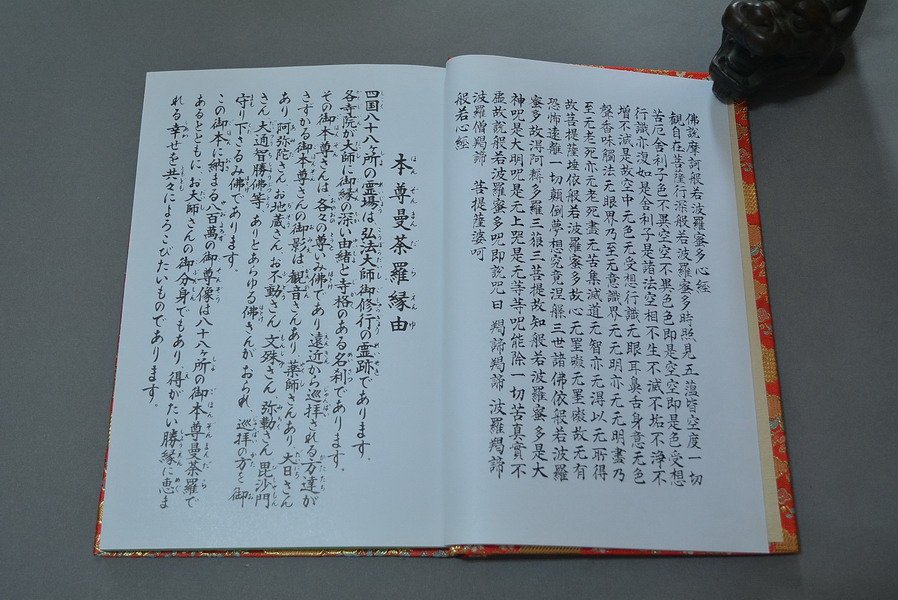 佛說摩訶般若波羅蜜多心經
觀自在菩薩行深般若波羅蜜多時照見五蘊皆空度一切
苦厄舍利子色不異空空不異色色即是空空即是色受想
行識亦復如是舍利子是諸法空相不生不滅不垢不淨不
增不減是故空中无色无受想行識无眼耳鼻舌身意无色
聲香味觸法无眼界乃至无意識界无无明亦无无明盡乃
至无老死亦无老死盡无苦集滅道无智亦无得以无所得
故菩提薩埵依般若波羅蜜多故心无罣礙无罣礙故无有
恐怖遠離一切顛倒夢想究竟涅槃三世諸佛依般若波羅
蜜多故得阿耨多羅三藐三菩提故知般若波羅蜜多是大
神呪是大明呪是无上呪是无等等呪能除一切苦真實不
虛故說般若波羅蜜多呪即說呪曰 羯諦羯諦 波羅羯諦
波羅僧羯諦 菩提薩婆呵
般若心經
本尊曼荼羅縁由
四国八十八ヶ所の霊場は弘法大師御修行の霊跡であります。
各寺院が大師に御縁の深い由緒と寺格のある名刹であります。
その御本尊さんは各々の尊いみ佛であり遠近から巡拝される方達が
さずかる御本尊さんの御影は観音さんあり薬師さんあり大日さん
あり阿弥陀さんお地蔵さんお不動さん文殊さん弥勒さん毘沙門
さん大通智勝佛等ありとあらゆる佛さんがおられ、巡拝の方々を御
守り下さるみ佛であります。
この御本に納まる八百萬の御尊像は八十八ヶ所の御本尊曼荼羅で
あるとともにお大師さんの御分身でもあり得がたい勝縁に恵ま
れる幸せを共々によろこびたいものであります。